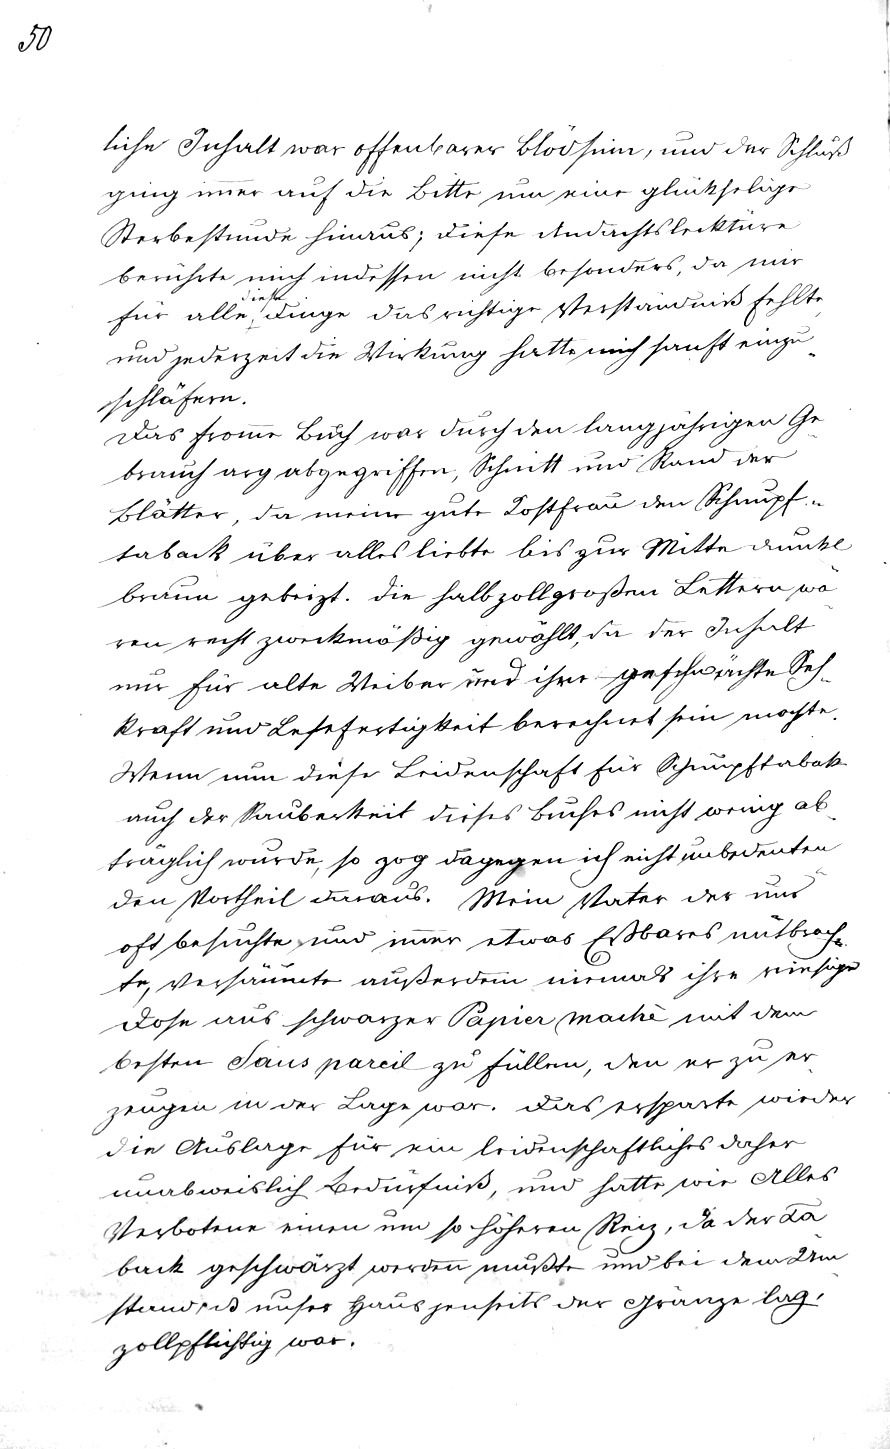 50
liche Inhalt war offenbarer Blödsinn, und der Schluß
ging im̄er auf die Bitte um eine glückselige
Sterbestunde hinaus; diese Andachtslecktüre
berührte mich indessen nicht besonders, da mir
für alle diese Dinge das richtige Verständniß fehlte,
und jederzeit die Wirkung hatte mich sanft einzu-
schläfern.
Das from̄e Buch war durch den langjährigen Ge-
brauch arg abgegriffen, Schnitt und Rand der
Blätter, da meine gute Kostfrau den Schnupf-
taback über alles liebte bis zur Mitte dunkel
braun gebeizt. Die halbzollgroßen Lettern wa
ren recht zweckmäßig gewählt, da der Inhalt
nur für alte Weiber und ihre geschwächte Seh-
kraft und Lesefertigkeit berechnet sein mochte.
Wenn nun diese Leidenschaft für Schnupftabak
auch der Sauberkeit dieses Buches nicht wenig ab-
träglich wurde, so zog dagegen ich nicht unbedeuten
den Vortheil daraus. Mein Vater der uns
oft besuchte und im̄er etwas Eßbares mitbrach-
te, versäumte außerdem niemals ihre riesige
Dose aus schwarzer Papier maché mit dem
besten Sans pareil zu füllen, den er zu er-
zeugen in der Lage war. Das ersparte wieder
die Auslage für ein leidenschaftliches daher
unabweislich Bedürfniß, und hatte wie Alles
Verbotene einen um so höheren Reiz, da der Ta
back geschwärzt werden mußte und bei dem Um
stand, daß unser Haus jenseits der Gränze lag,
zollpflichtig war.